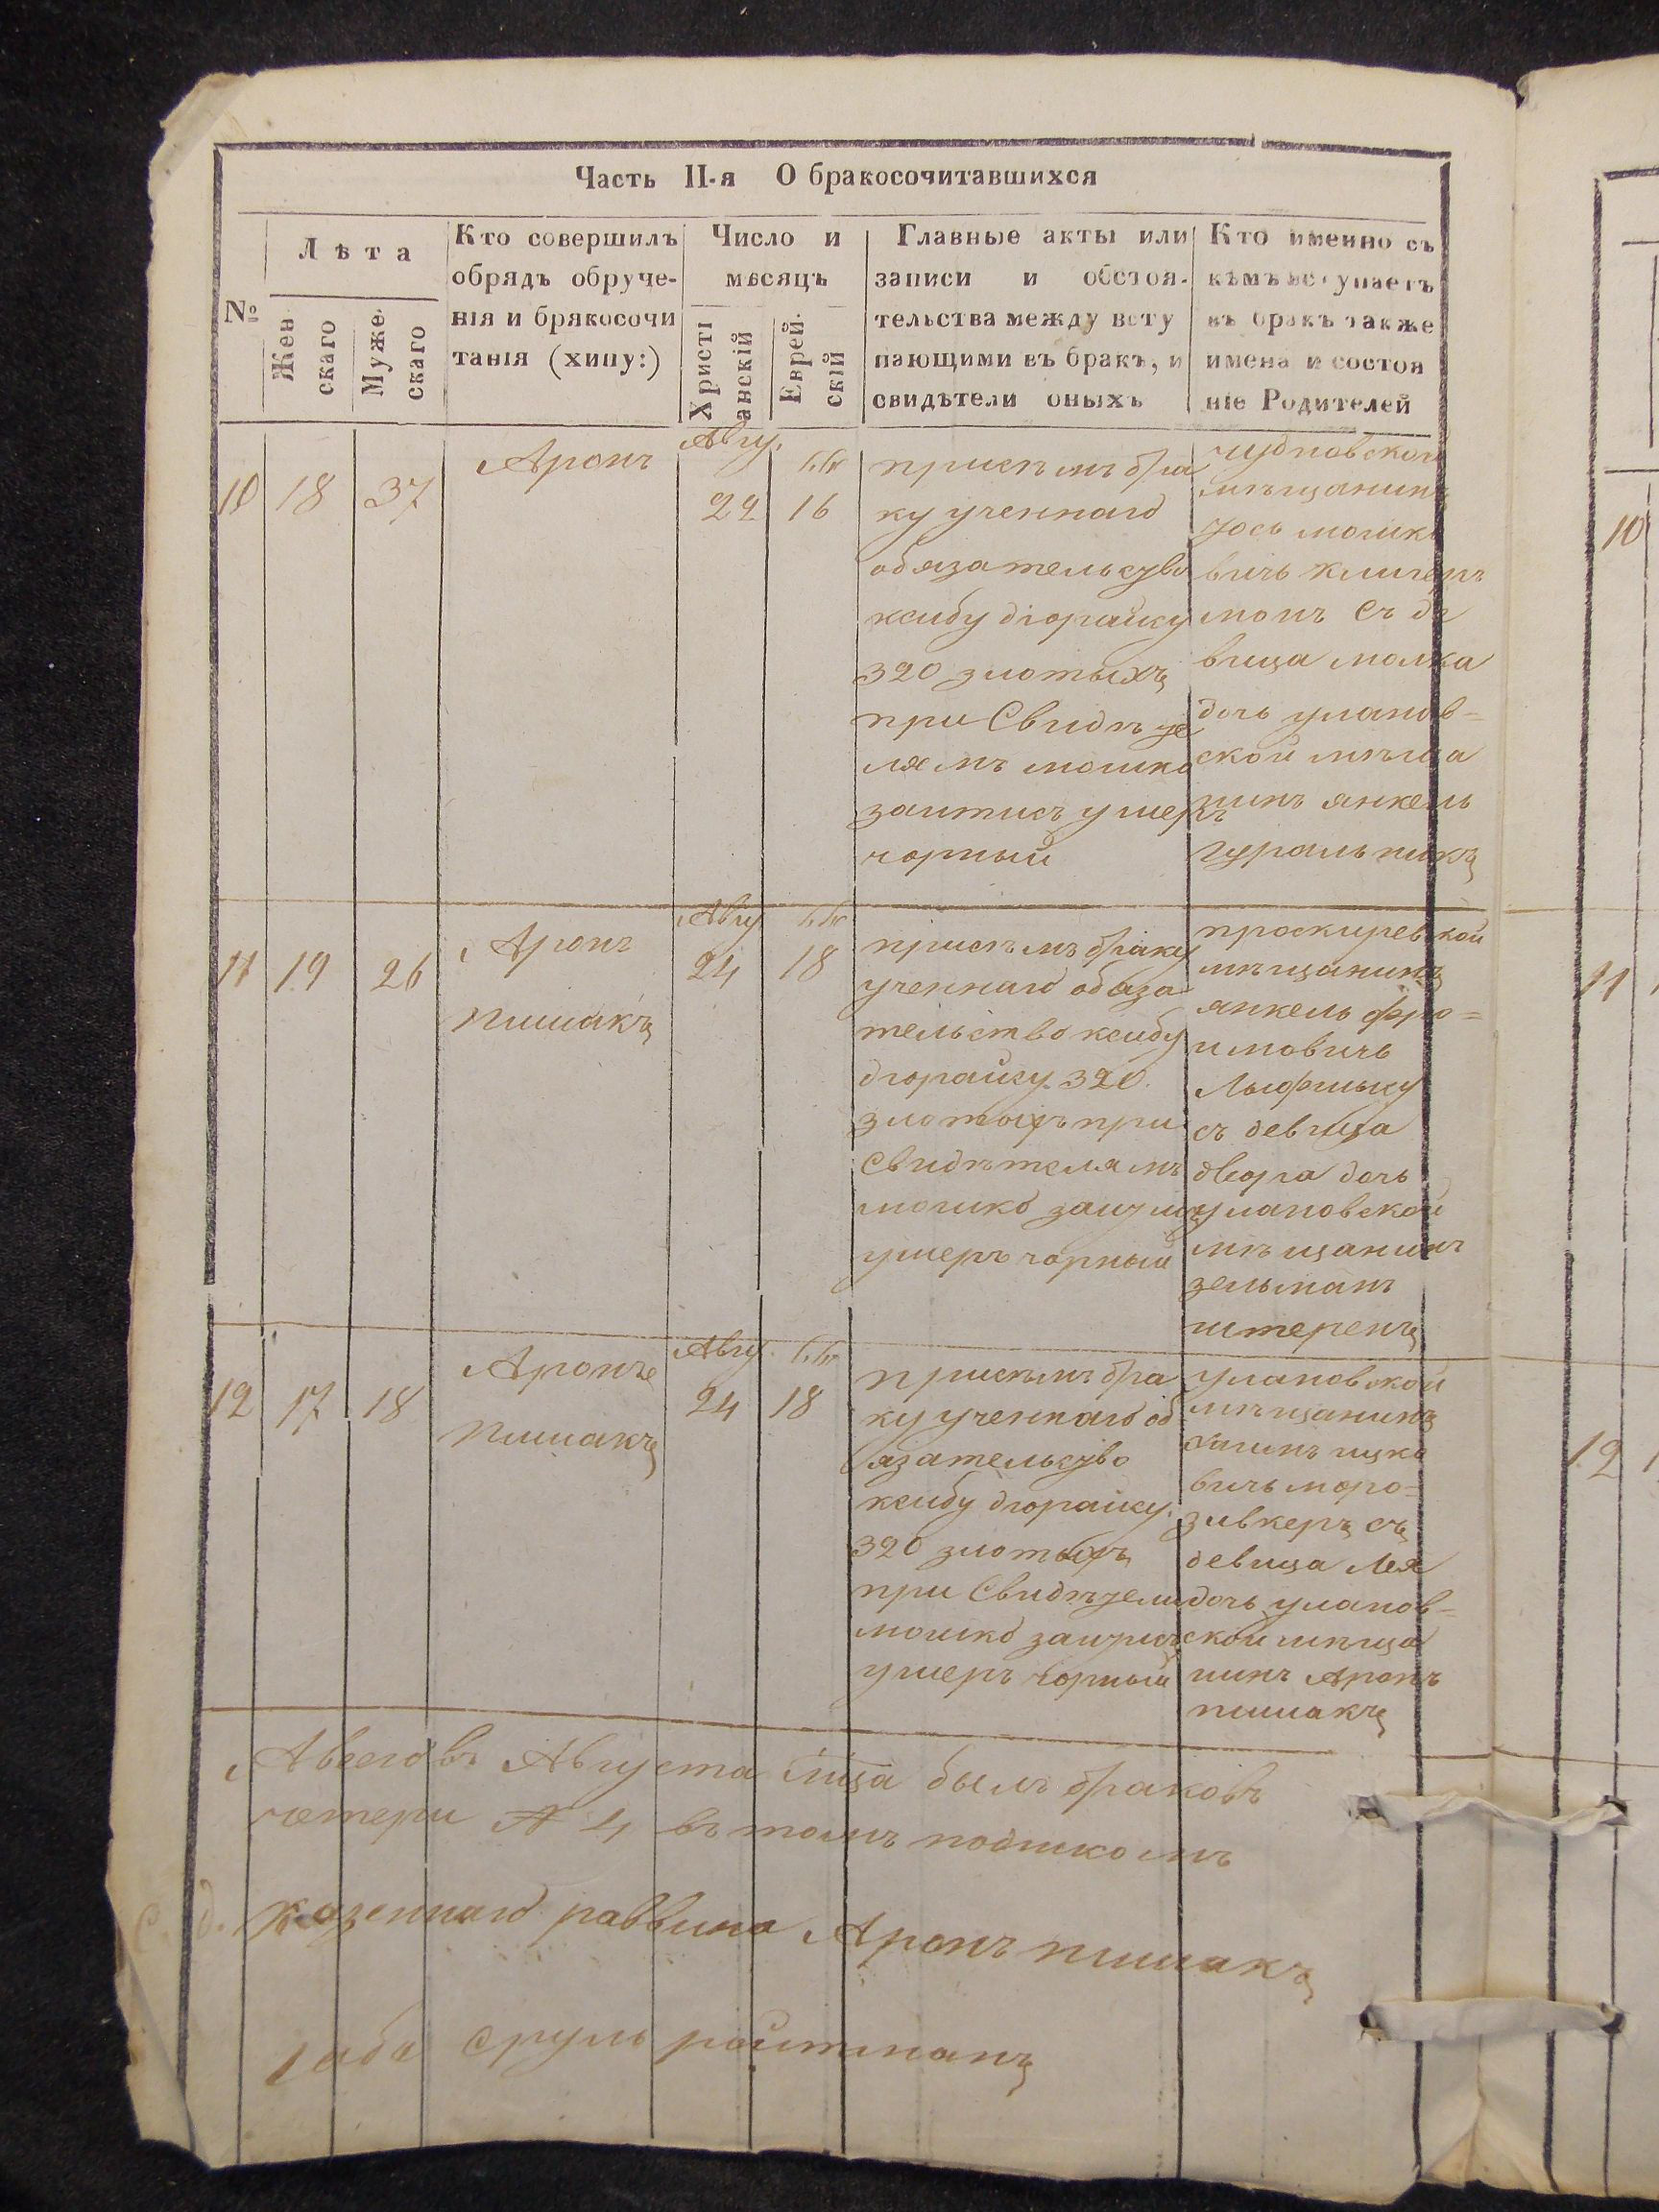 Часть II-я О бракосочитавшихся
№
Лѣта
Жен
скаго
Муже
скаго
Кто совершилъ
обрядъ обруче-
нія и брякосочи
танія (хипу:)
Число и
мѣсяцъ
Христі
анскій
Еврей-
скій
Главные акты или
записи и обстоя-
тельства между всту
пающими въ бракъ, и
свидѣтели оныхъ
Кто именно съ
кѣмъ вступаетъ
въ бракъ также
имена и состоя
ніе Родителей
10 18 37
Аронъ
Авгу.
22 16
присемъ бра
ку ученнаго
обязательство
ксибу діорайсу
320 злотыхъ
при Свидѣте
лямъ мошко
ушеръ
чорный
чудновской
мѣщанинъ
мошко
вичъ
съ де
вица малка
дочь уланов=
ской мѣща
нинъ янкель
гуральникъ
11 19 26
Аронъ
пишакъ
Авгу
24 18
присемъ браку
ученнаго обяза
тельство ксибу
дюрайсу 320
злотыхъ при
Свидѣтелямъ
мошко
ушеръ чорный
проскуревской
мѣщанинъ
янкель фро=
имовичъ
съ девица
двора дочь
улановской
мѣщанинъ
зельманъ
штеренъ
12 17 18
Аронъ
пишакъ
Авгу.
24 18
присемъ бра
ку ученнаго об
язательство
ксибу дюрайсу
320 злотыхъ
при Свидѣтели
мошко
ушеръ чорный
улановской
мѣщанинъ
ицко
вичъ моро=
зивкеръ съ
девица Лея
дочь уланов=
ской мѣща
нинъ Аронъ
пишакъ
Авсего въ Августа мца былъ браковъ
четери № 4 въ томъ подпискомъ
С. д. казеннаго раввина Аронъ пишакъ
Габе Сруль ройтманъ
10
11
12